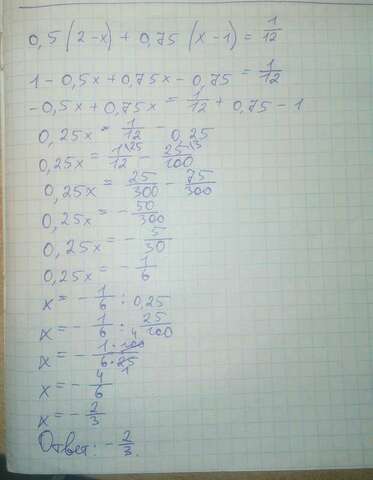 0,5(2-x) + 0,75(x-1) = 1/12
1 - 0,5x + 0,75x - 0,75 = 1/12
-0,5x + 0,75x = 1/12 + 0,75 - 1
0,25x = 1/12 - 0,25
0,25x = 1\25/12 - 25\3/100
0,25x = 25/300 - 75/300
0,25x = - 50/300
0,25x = - 5/30
0,25x = - 1/6
x = - 1/6 : 0,25
x = - 1/6 : 25/100
x = - 1·100 4/6·25 1
x = - 4/6
x = - 2/3
Ответ: - 2/3.